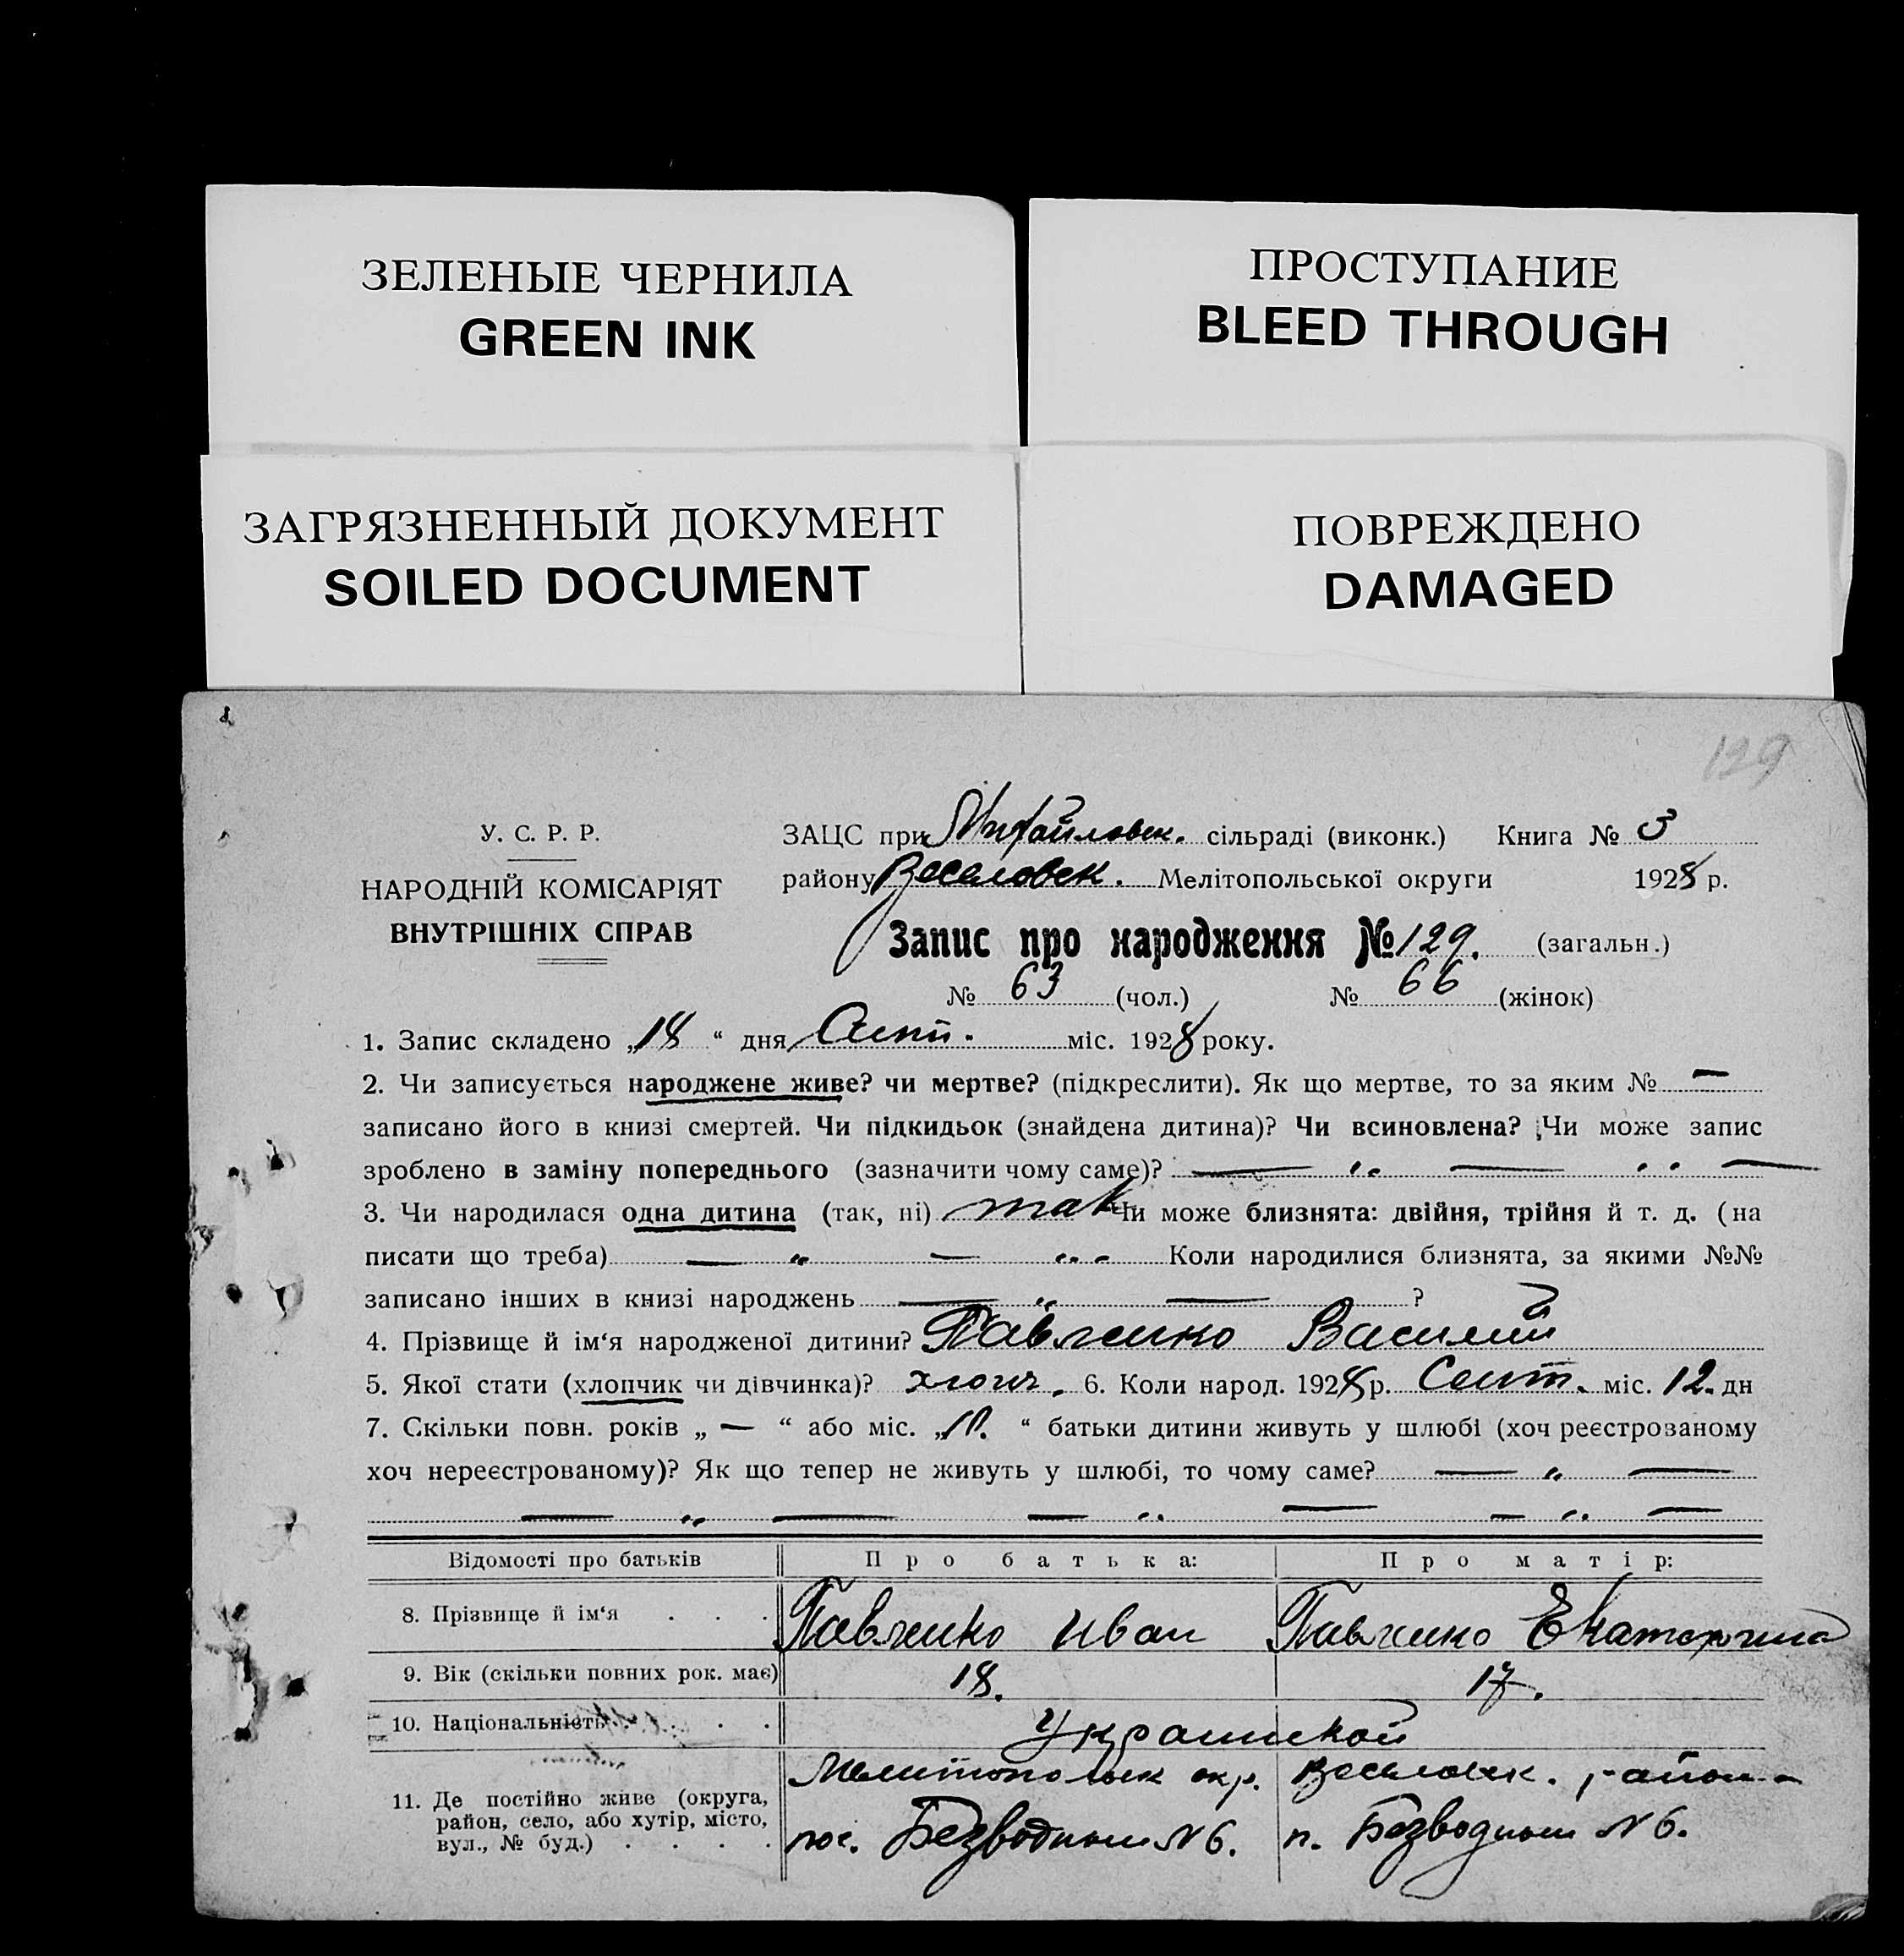 ЗЕЛЕНЫЕ ЧЕРНИЛА
GREEN INK
ПРОСТУПАНИЕ
BLEED THROUGH
ЗАГРЯЗНЕННЫЙ ДОКУМЕНТ
SOILED DOCUMENT
ПОВРЕЖДЕНО
DAMAGED
129
У. С. Р. Р.
НАРОДНІЙ КОМІСАРІЯТ
ВНУТРІШНІХ СПРАВ
ЗАЦС при Михайловск. сільраді (виконк.) Книга № 3
району Веселовск. Мелітопольської округи 1928 р.
Запис про народження № 129. (загальн.)
№ 63 (чол.) № 66 (жінок)
1. Запис складено „18“ дня Сент. міс. 1928 року.
2. Чи записується народжене живе? чи мертве? (підкреслити). Як що мертве, то за яким № —
записано його в книзі смертей. Чи підкидьок (знайдена дитина)? Чи всиновлена? Чи може запис
зроблено в заміну попереднього (зазначити чому саме)? — „ — „ —
3. Чи народилася одна дитина (так, ні) так Чи може близнята: двійня, трійня й т. д. (на
писати що треба) — „ — „ - Коли народилися близнята, за якими №№
записано інших в книзі народжень — „ — ?
4. Прізвище й ім‘я народженої дитини? Павленко Василий
5. Якої стати (хлопчик чи дівчинка)? хлопч. 6. Коли народ. 1928 р. Сент. міс. 12. дн
7. Скільки повн. років „ — “ або міс. „10. “ батьки дитини живуть у шлюбі (хоч реєстрованому
хоч нереєстрованому)? Як що тепер не живуть у шлюбі, то чому саме? — „ —
— „ — — „ — — „ —
Відомості про батьків Про батька: Про матір:
8. Прізвище й ім‘я . . . Павленко Иван Павленко Екатерина
9. Вік (скільки повних рок. має) 18. 17.
10. Національність . . . . Украинской
11. Де постійно живе (округа, район, село, або хутір, місто, вул., № буд.) . . . . Мелитопольск окр. Веселовск. район
пос. Безводном N 6. п. Безводном N 6.